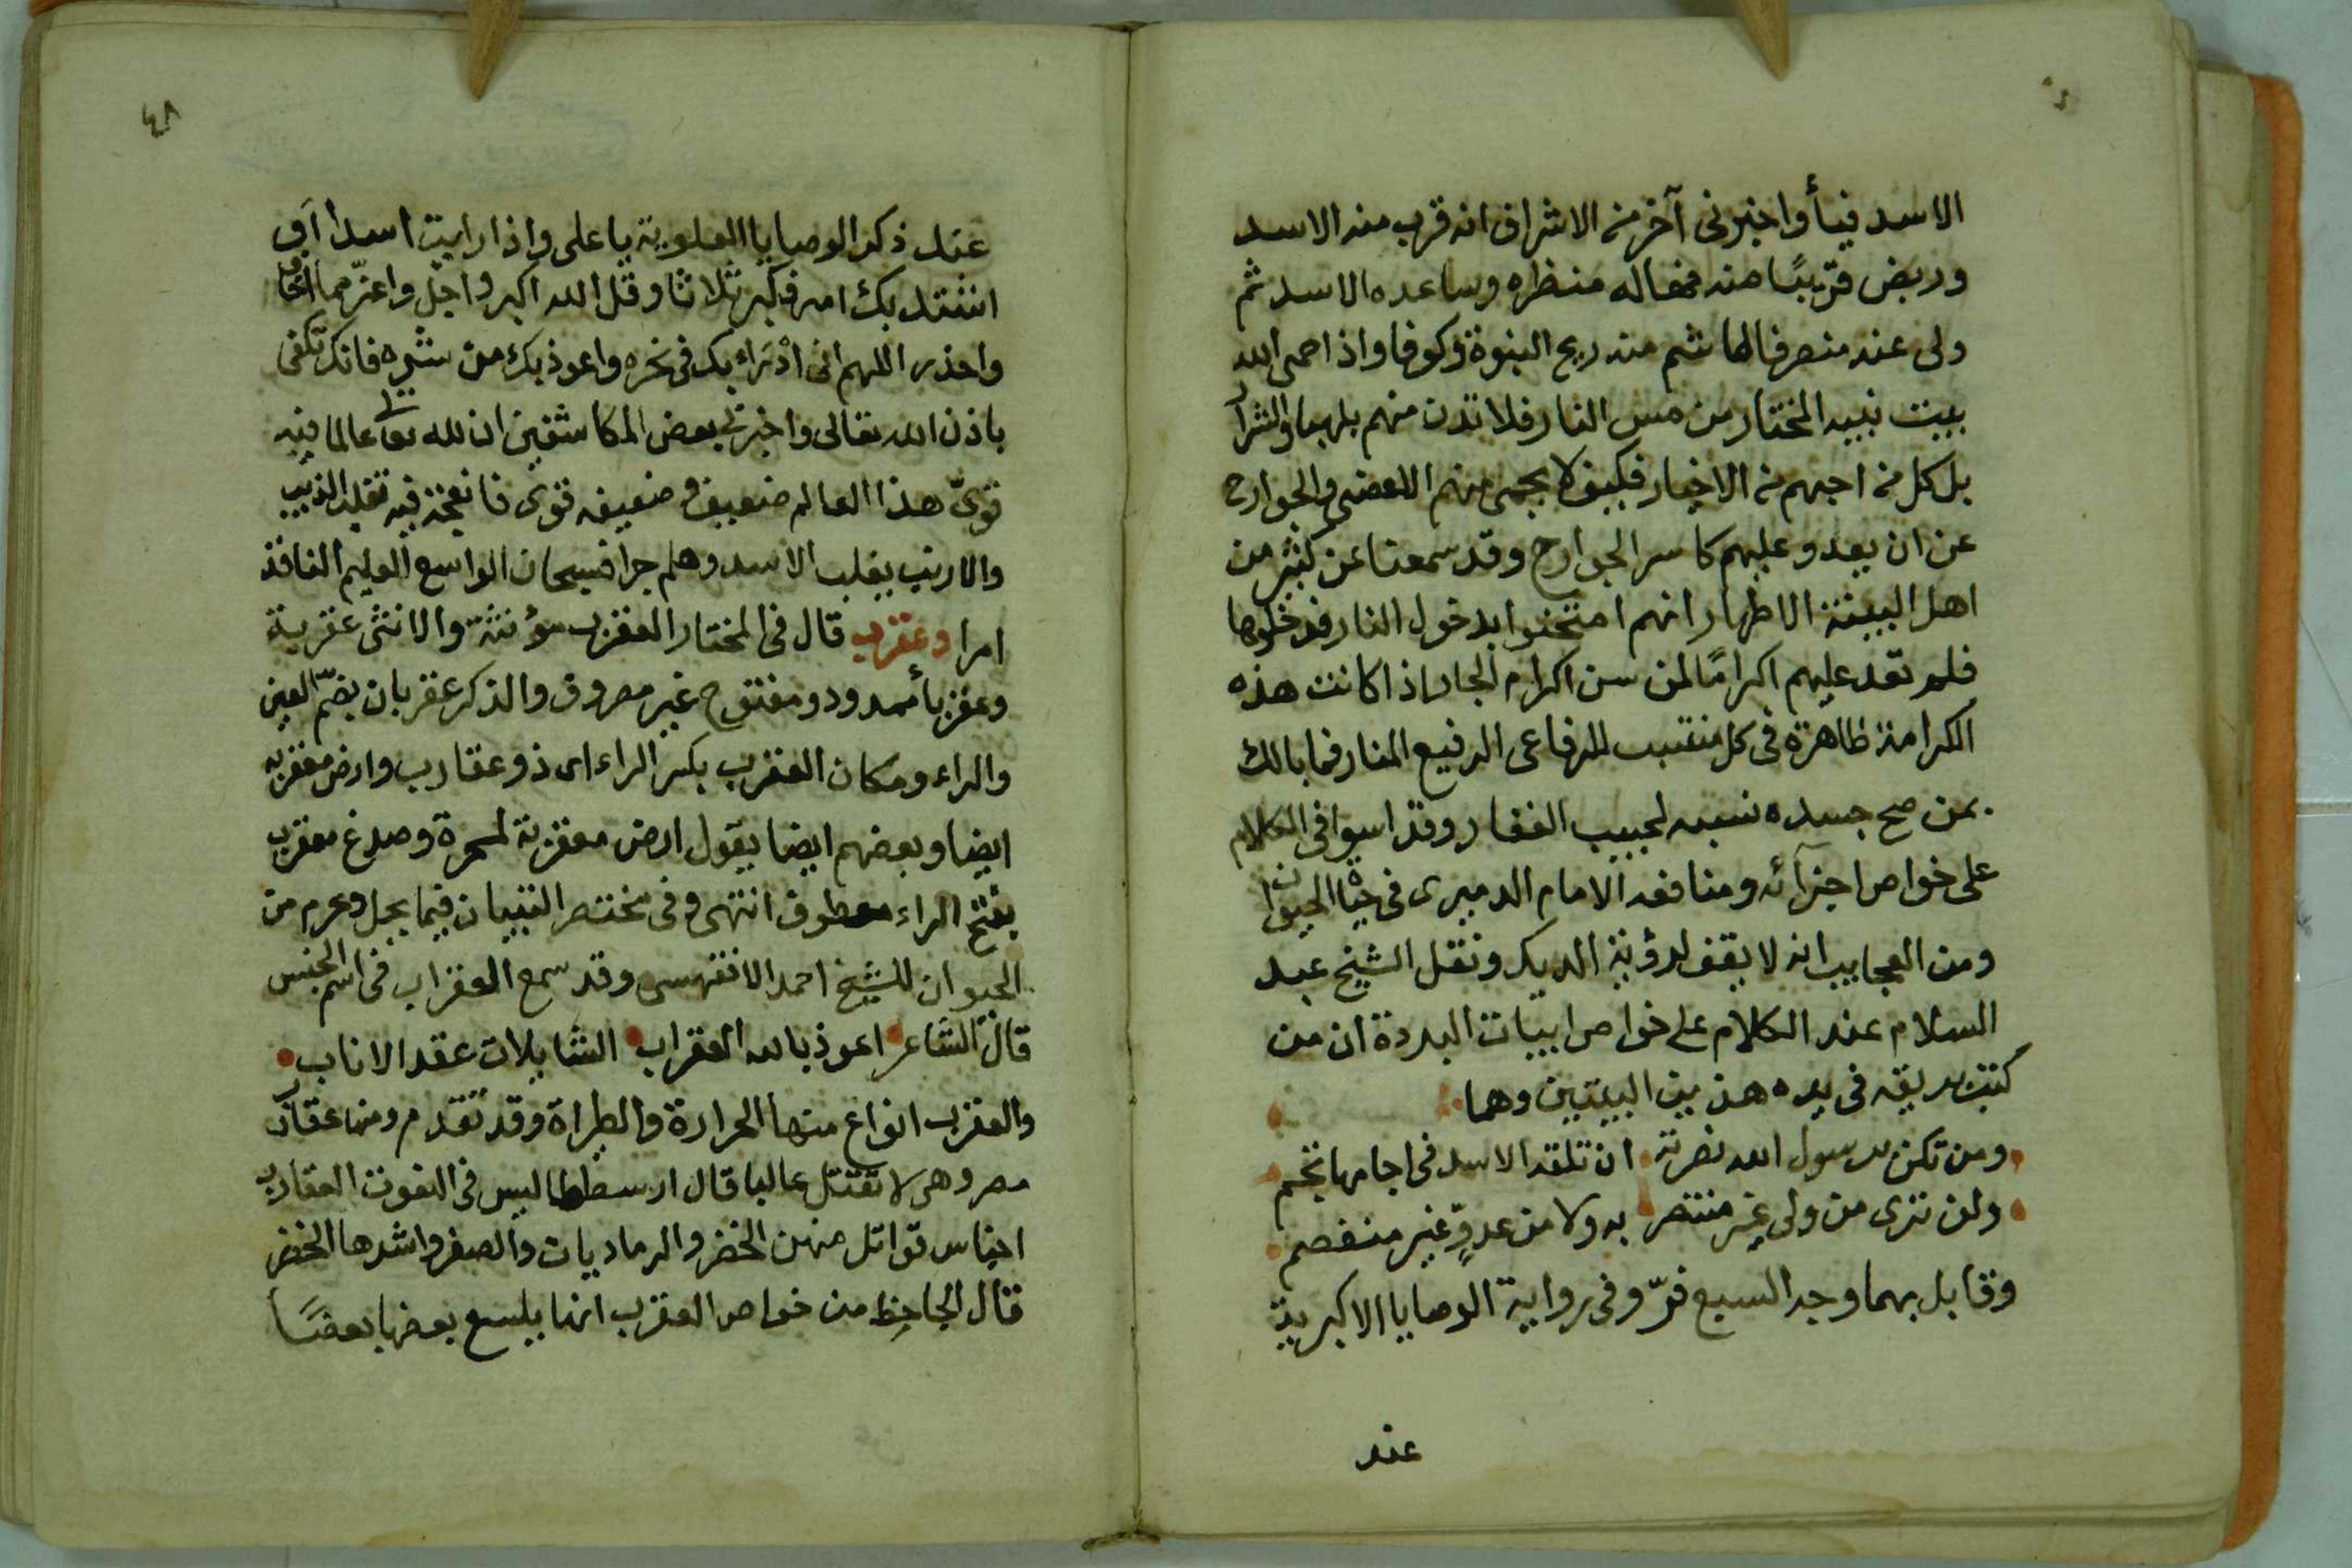 الاسد فنأ واخبرنى آخر من الاشراف انه قرب منه الاسد
وربض قريبًا منه فغاله منظره وساعده الاسد ثم
ولى عنه منصرفا لما شم منه ريح البنوة وكوفا واذا حمى الله
ببيت نبيه المختار من مس النار فلا تدن منهم بلهبها والشرار
بل كل من احبهم من الاخيار فكيف لا يحمى منهم الاعضى والجوارح
عن ان يعدو عليهم كاسر الجوارح وقد سمعنا عن كثير من
اهل البيعة الاطهار انهم امتحنوا بدخول النار فدخلوها
فلم تعد عليهم اكرامًا لمن سن اكرام الجار اذا كانت هذه
الكرامة ظاهرة فى كل منتسب للرفاعى الرفيع المنار فما بالك
بمن صح جسده نسبه لحبيب الغفار وقد اسوا فى الكلام
على خواص اجزآئه ومنافعه الامام الدميرى فى حياة الحيوان
ومن العجايب انه لا يقف لرؤية الديك ونقل الشيخ عبد
السلام عند الكلام على خواص ابيات البردة ان من
كتب بريقه فى يده هذين البيتين وهما
ومن تكن برسول الله نصرته ان تلقه الاسد فى اجامها تجم
ولن ترى من ولى غير منتصر به ولا من عدوٍّ غير منفصم
وقابل بهما وجه السبع فرّ وفى رواية الوصايا الاكبرية
عند
٤٨
عند ذكر الوصايا العلوية يا على واذا رايت اسدا او
اشتد بك امر فكبر ثلاثا وقل الله اكبر واجل واعزّ مما اخاف
واحذر اللهم انى ادْرَاء بك فى نحره واعوذ بك من شره فانك تكفى
باذن الله تعالى واخبرنى بعض المكاشفين ان لله تعالى عالما فيه
قوىّ هذا العالم ضعيف وضعيفه قوى فالنعجة فيه تقلد الذيب
والارنب يغلب الاسد وهلم جرا فسبحان الواسع العليم النافذ
امرا وعقرب قال فى المختار العقرب مؤنثة والانثى عقربة
وعقربأ ممدود ومفتوح غير مصروف والذكر عقربان بضمّ العين
والراء ومكان العقرب بكسر الراء اى ذو عقارب وارض معقربه
ايضا وبعضهم ايضا يقول ارض معقربة لمحرة وصدغ معقرب
بفتح الراء معطوف انتهى وفى مختصر التبيان فيما يحل وحرم من
الحيوان للشيخ احمد الاقفهسى وقد سمع العقراب فى اسم الجنس
قال الشاعر اعوذ بالله العقراب الشايلات عقد الاناب
والعقرب انواع منها الجرارة والطيراة وقد تقدم ومنها عقارب
مصر وهى لا تقتل غالبا قال ارسطاطاليس فى النعوت العقارب
اجناس قواتل منهن الخضر والرماديات والصفر واشدها الخضر
قال الجاحِظ من خواص العقرب انها يلسع بعضها بعضًا